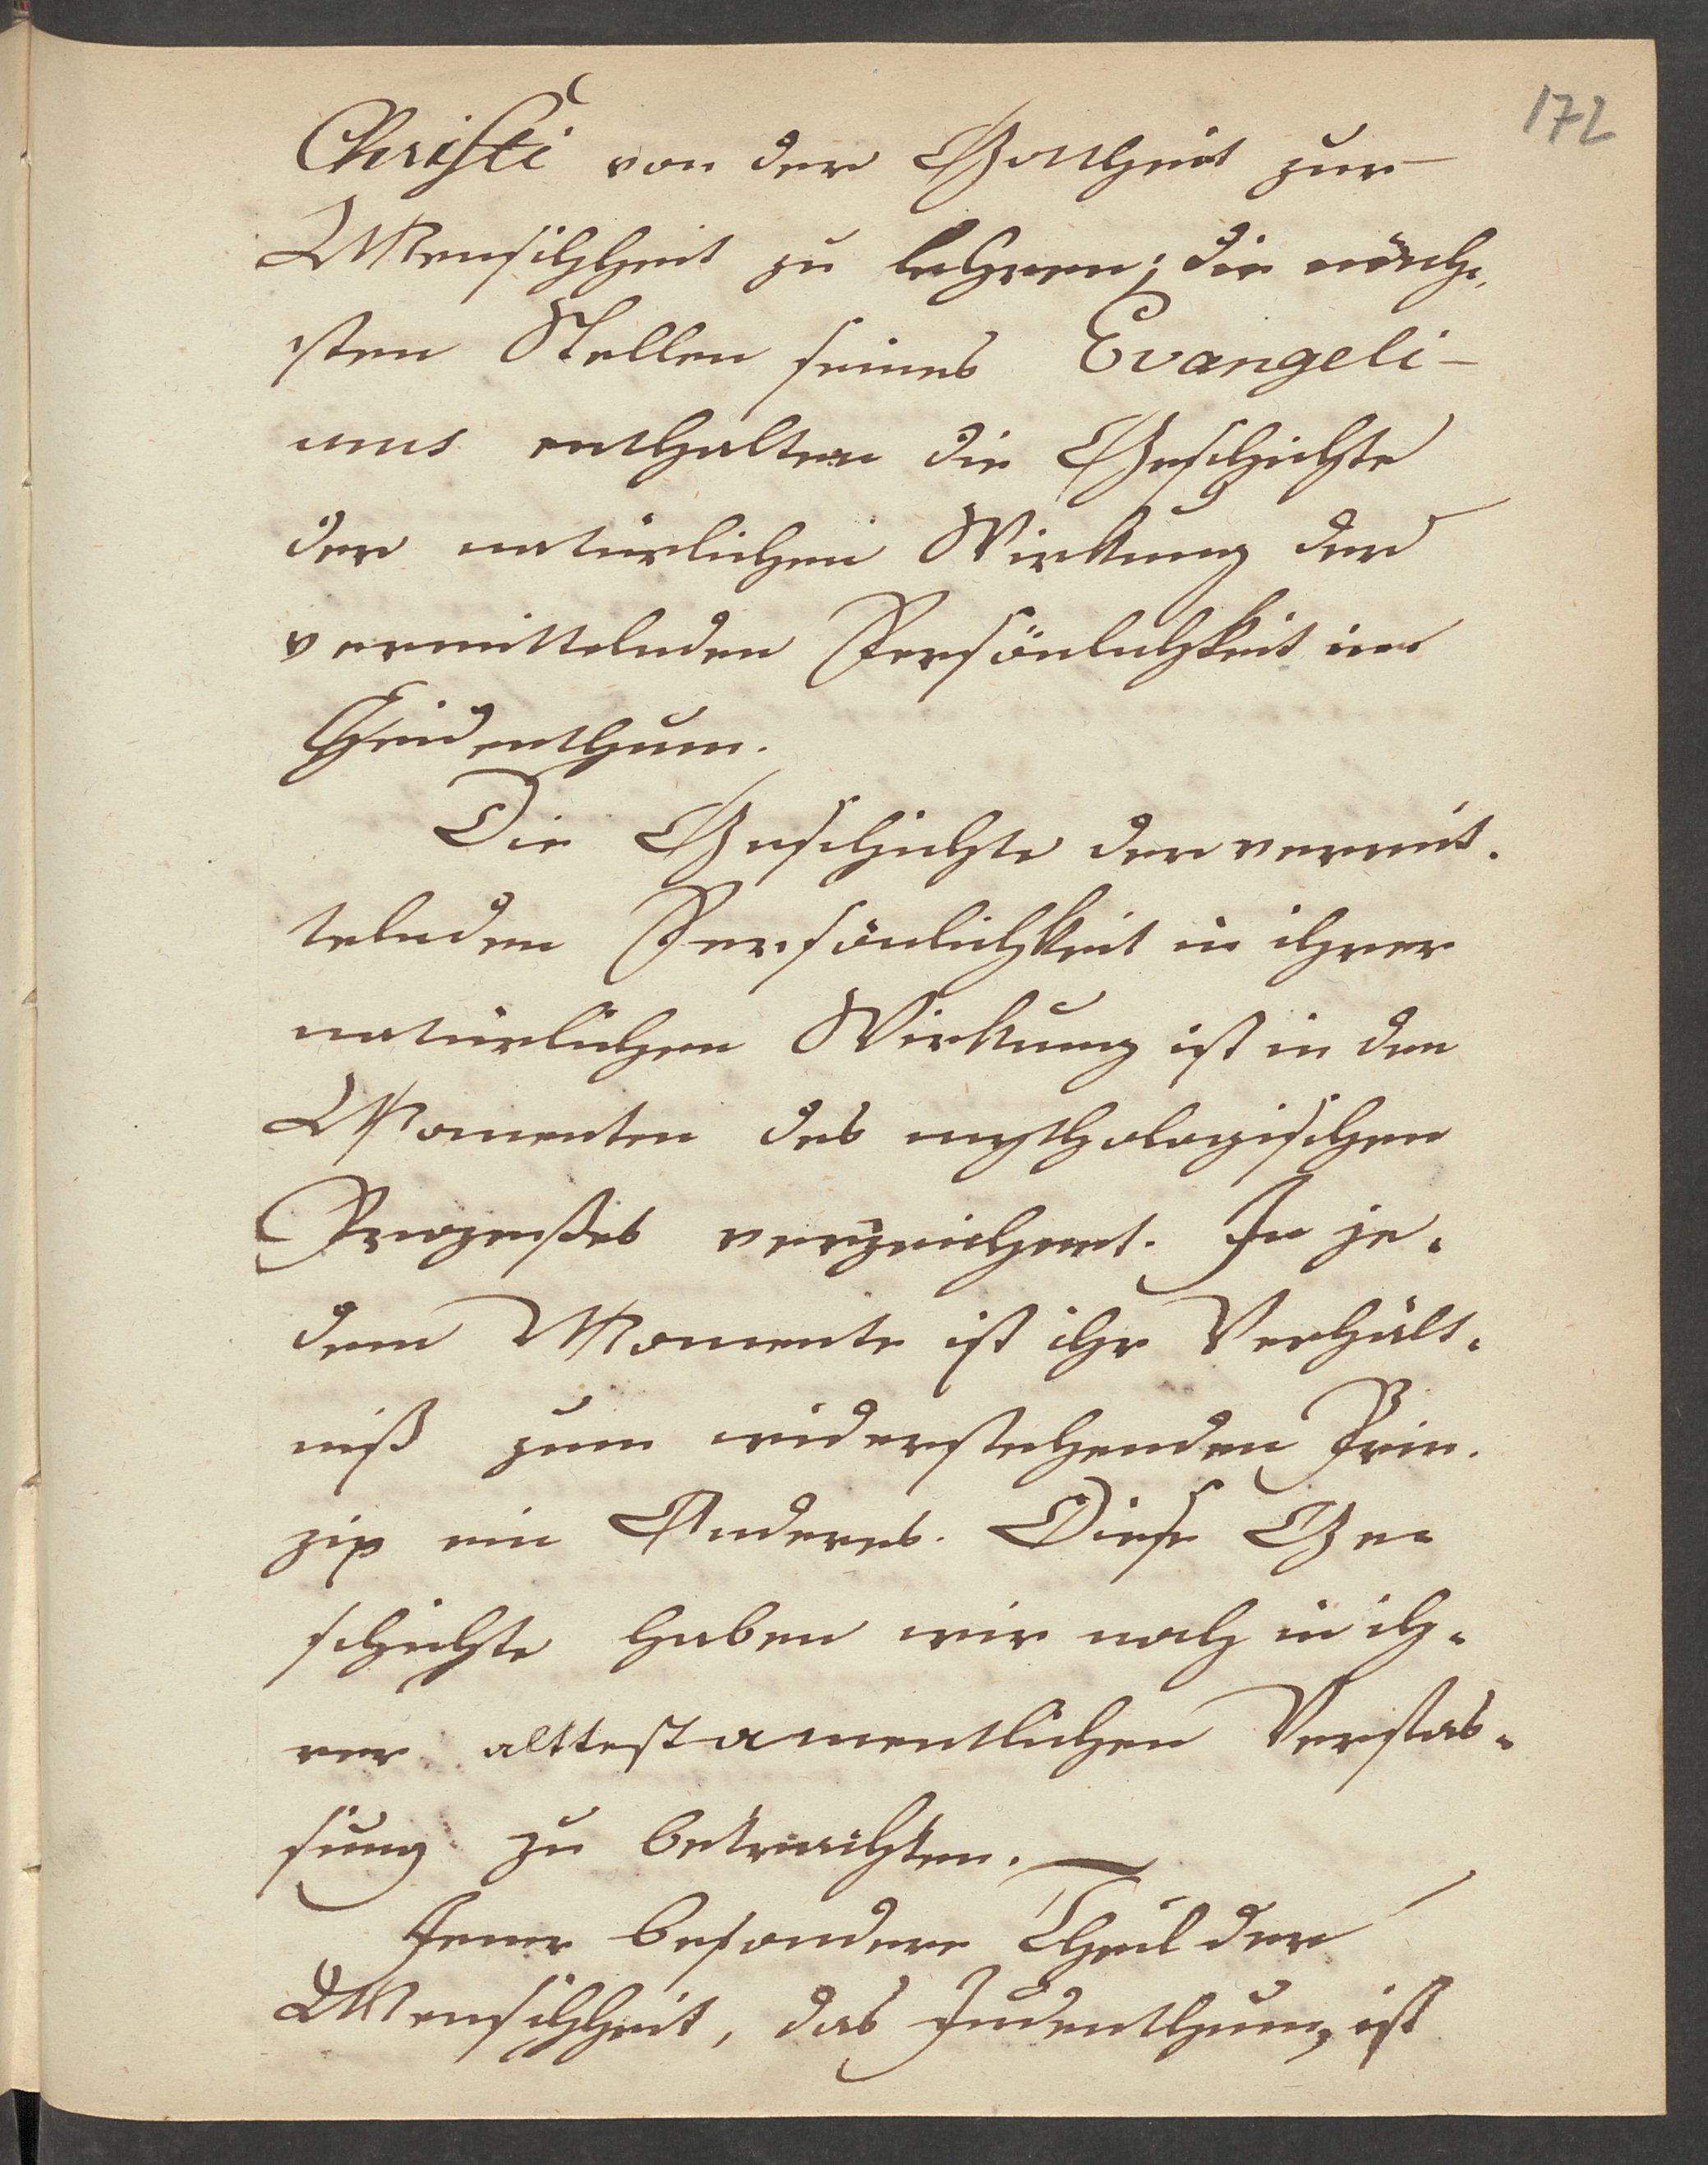 172
Christi von der Gottheit zur
Menschheit zu lehren; die näch-
sten Stellen seines Evangeli-
ums enthalten die Geschichte
der natürlichen Wirkung der
vermittelnden Persönlichkeit im
Heidenthum.
Die Geschichte der vermit-
telnden Persönlichkeit in ihrer
natürlichen Wirkung ist in den
Momenten des mythologischen
Prozeßes verzeichnet. In je-
dem Momente ist ihr Verhält-
niß zum widerstehenden Prin-
zip ein Anderes. Diese Ge-
schichte haben wir noch in ih-
rer alttestamentlichen
zu betrachten. —
Jener besondere Theil der
Menschheit, das Judenthum, ist